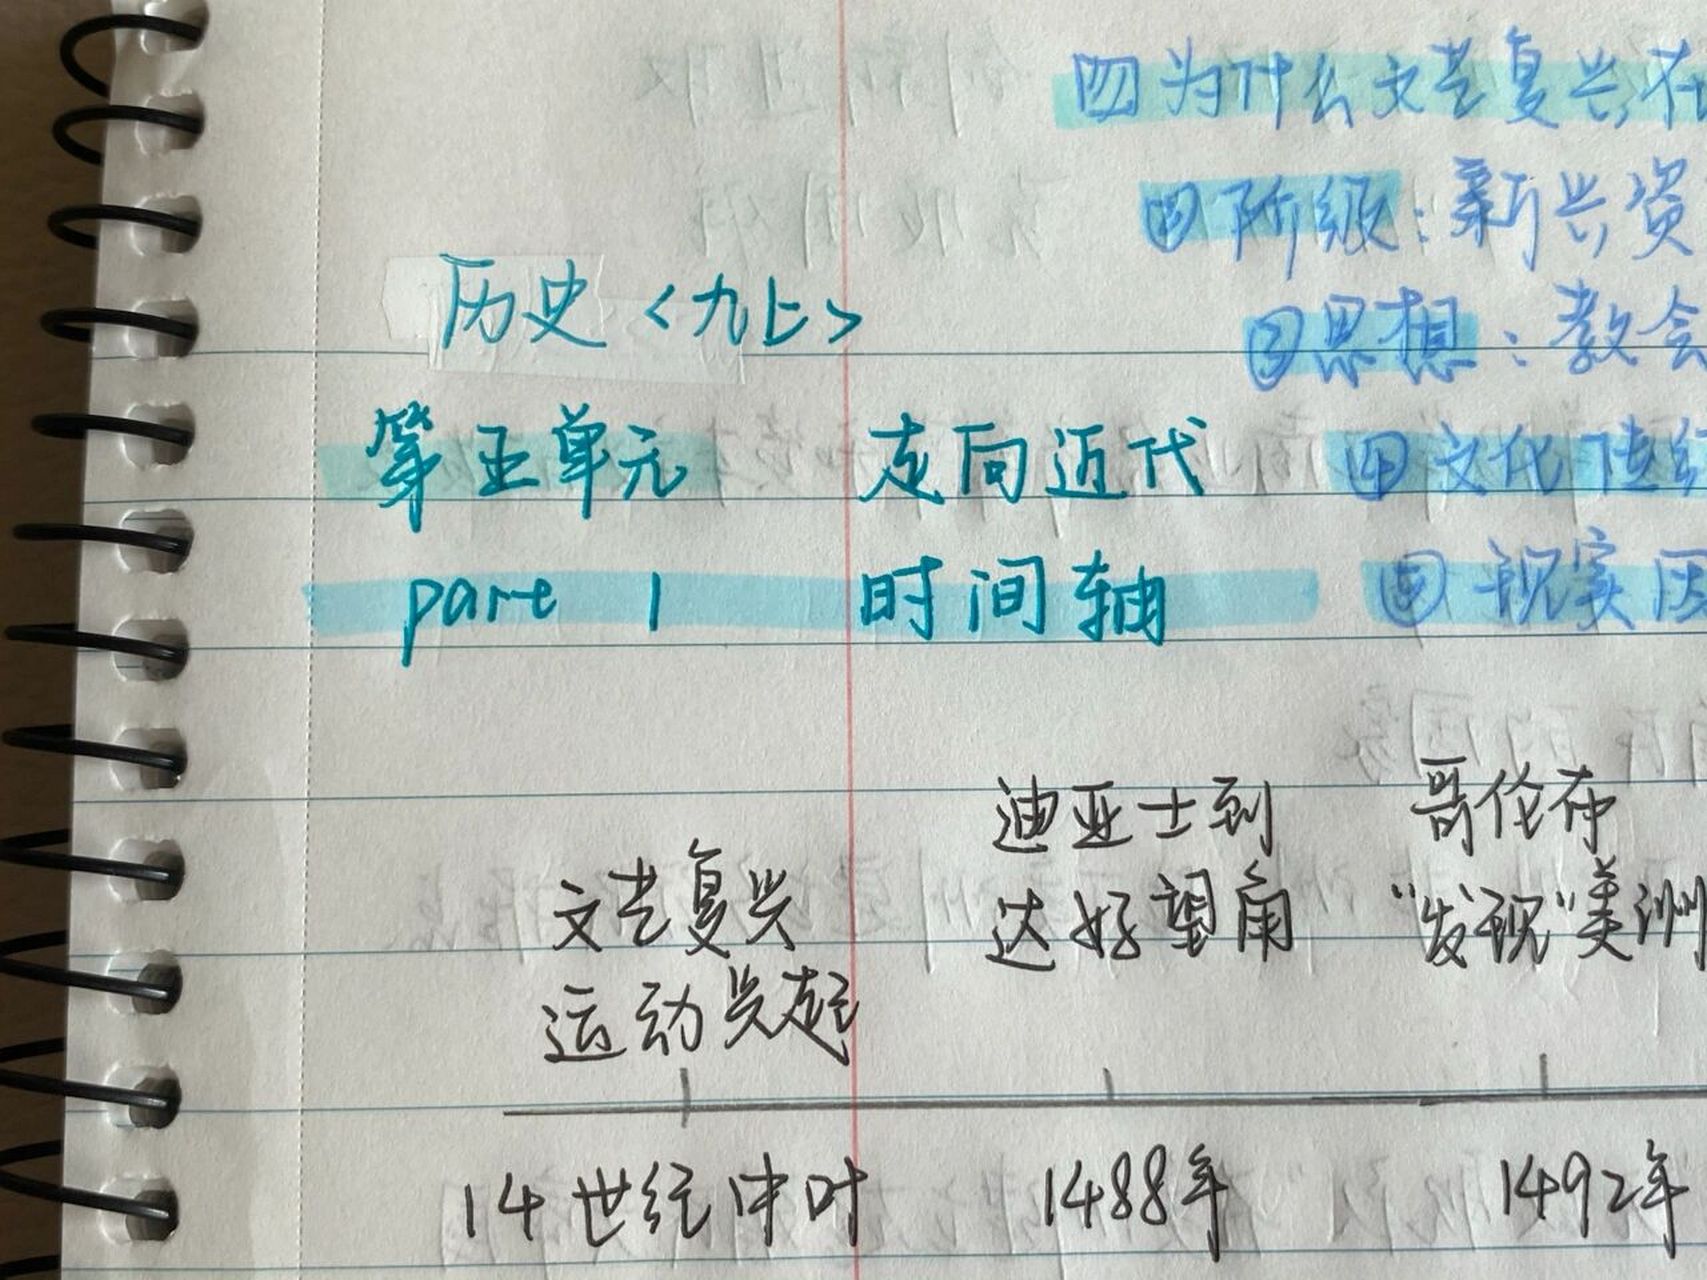 历史<九上>
第五单元 走向近代
part 1 时间轴
文艺复兴
运动兴起
迪亚士到
达好望角
哥伦布
“发现”美洲
14世纪中叶 1488年 1492年
四为什么文艺复兴在
①阶级：新兴资
②思想：教会
④文化
⑤现实因